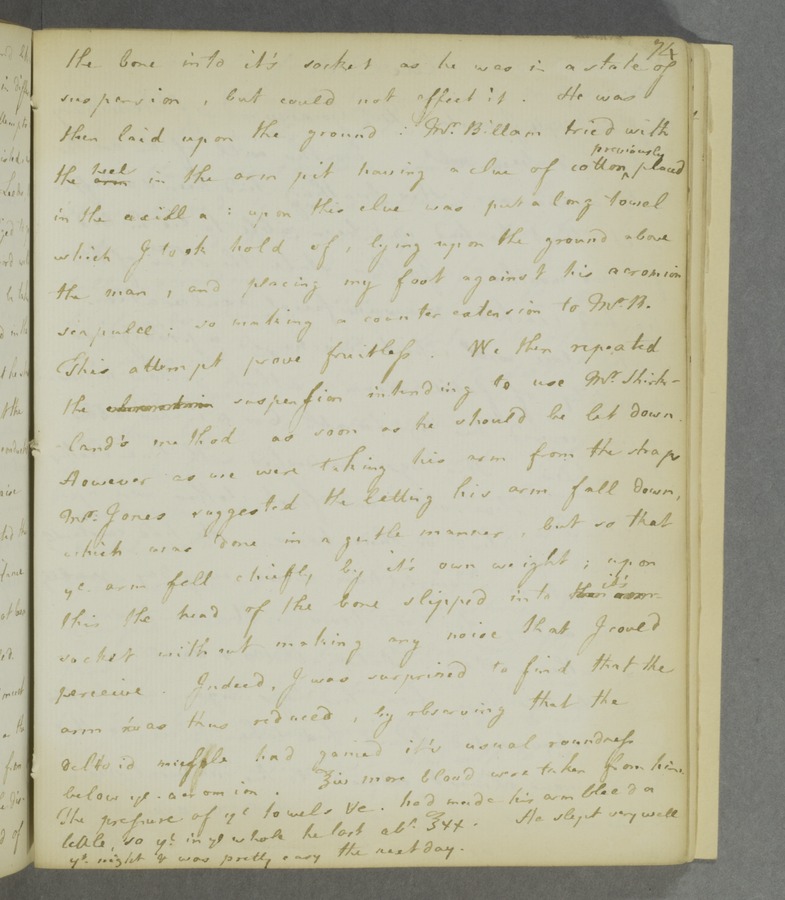 74
the bone into it's socket as he was in a state of
suspension, but could not effect it. He was
then laid upon the ground: Mr. Billam tried with
previously
the heel in the arm pit having a clue of cotton ^ placed
in the axilla: upon this clue was put a long towel
which I took hold of, lying upon the ground above
the man, and placing my foot against his acromion
scapulæ; so making a counter extension to Mr. B.
This attempt prove fruitless. We then repeated
the suspension intending to use Mr. Shirk-
land's method as soon as he should be let down.
However as we were taking his arm from the straps
Mr. Jones suggested the letting his arm fall down,
which was done in a gentle manner, but so that
ye. arm fell chiefly by it's own weight; upon
this the head of the bone slipped into it's
socket without making any noise that I could
perceive. Indeed, I was surprised to find that the
arm was thus reduced, by observing that the
deltoid muscle had gained it's usual roundness
below ye. acromion. more blood were taken from him
The pressure of ye towels &c. had made his arm bleed a
little, so yt. in ye whole he lost abt. ℥xx. He slept very well
ye. night & was pretty easy the next day.